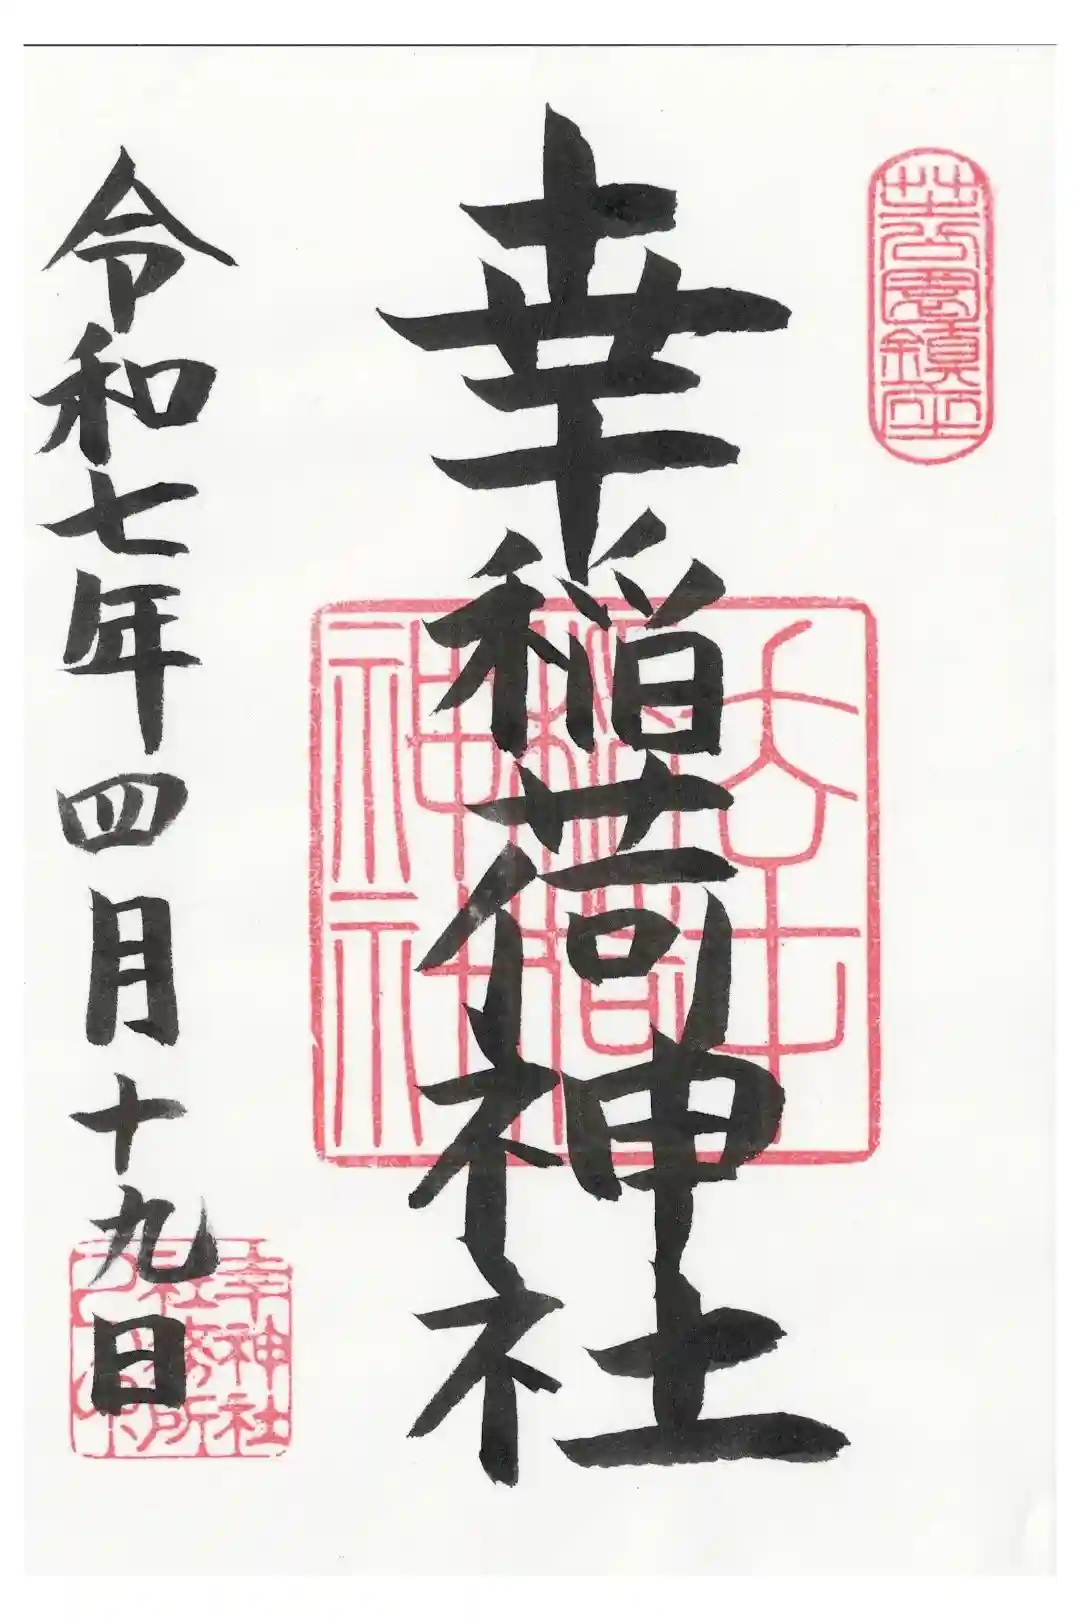 芝公園鎮座
幸稲荷神社
幸稲荷神社
令和七年四月十九日
幸神社
社務所
之印